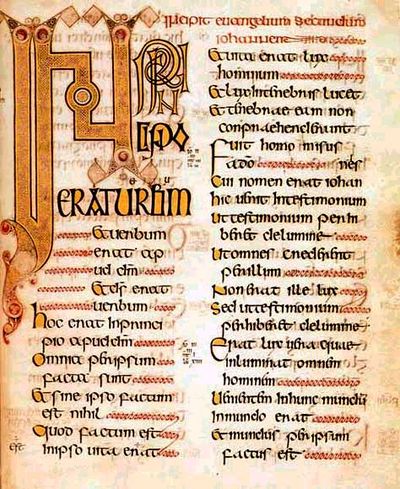 incipit euangelium secundum
iohannen
IN PRIN
CIPIO
ERATUERBUM
et uerbum
erat ap
ud dm̄
et d̄s erat
uerbum
hoc erat inprinci
pio apud dm̄
omnia per ipsum
facta sunt
et sine ipso factum
est nihil
quod factum est
inipso uita erat
et uita erat lux
hominum
et lux intenebris lucet
et tenebrae eam non
conpraehenderunt
fuit homo misus
a do nes
cui nomen erat iohan
hic uenit intestimonium
ut testimonium perhi
beret delumine
ut omnes crederent
per illum
non erat ille lux
sed ut testimonium
perhiberet delumine
erat lux uera quae
inluminat omnem
hominem
uenientem inhunc mundum
inmundo erat
et mundus per ipsum
factus est